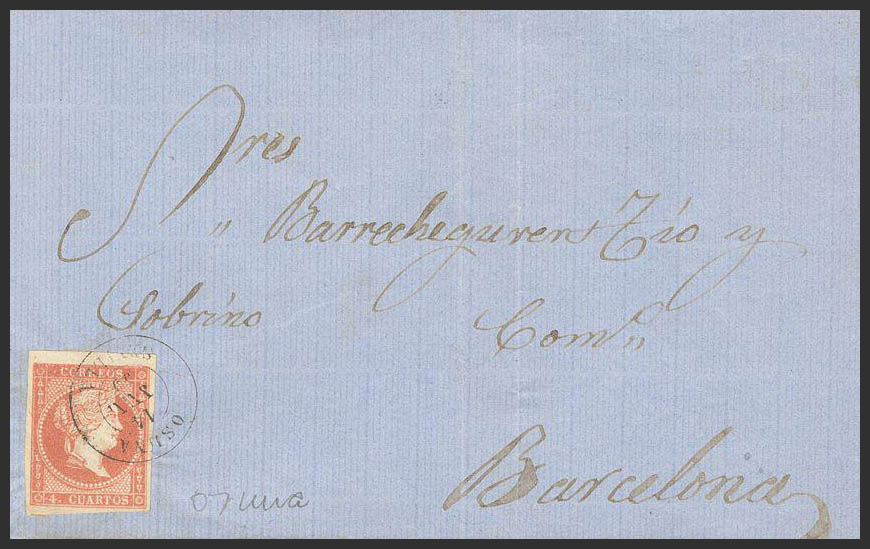 Sres
„ Barrecheguren Tío y
Sobrino Com.ª „
Barcelona
CORREOS
4. CUARTOS
Osuna